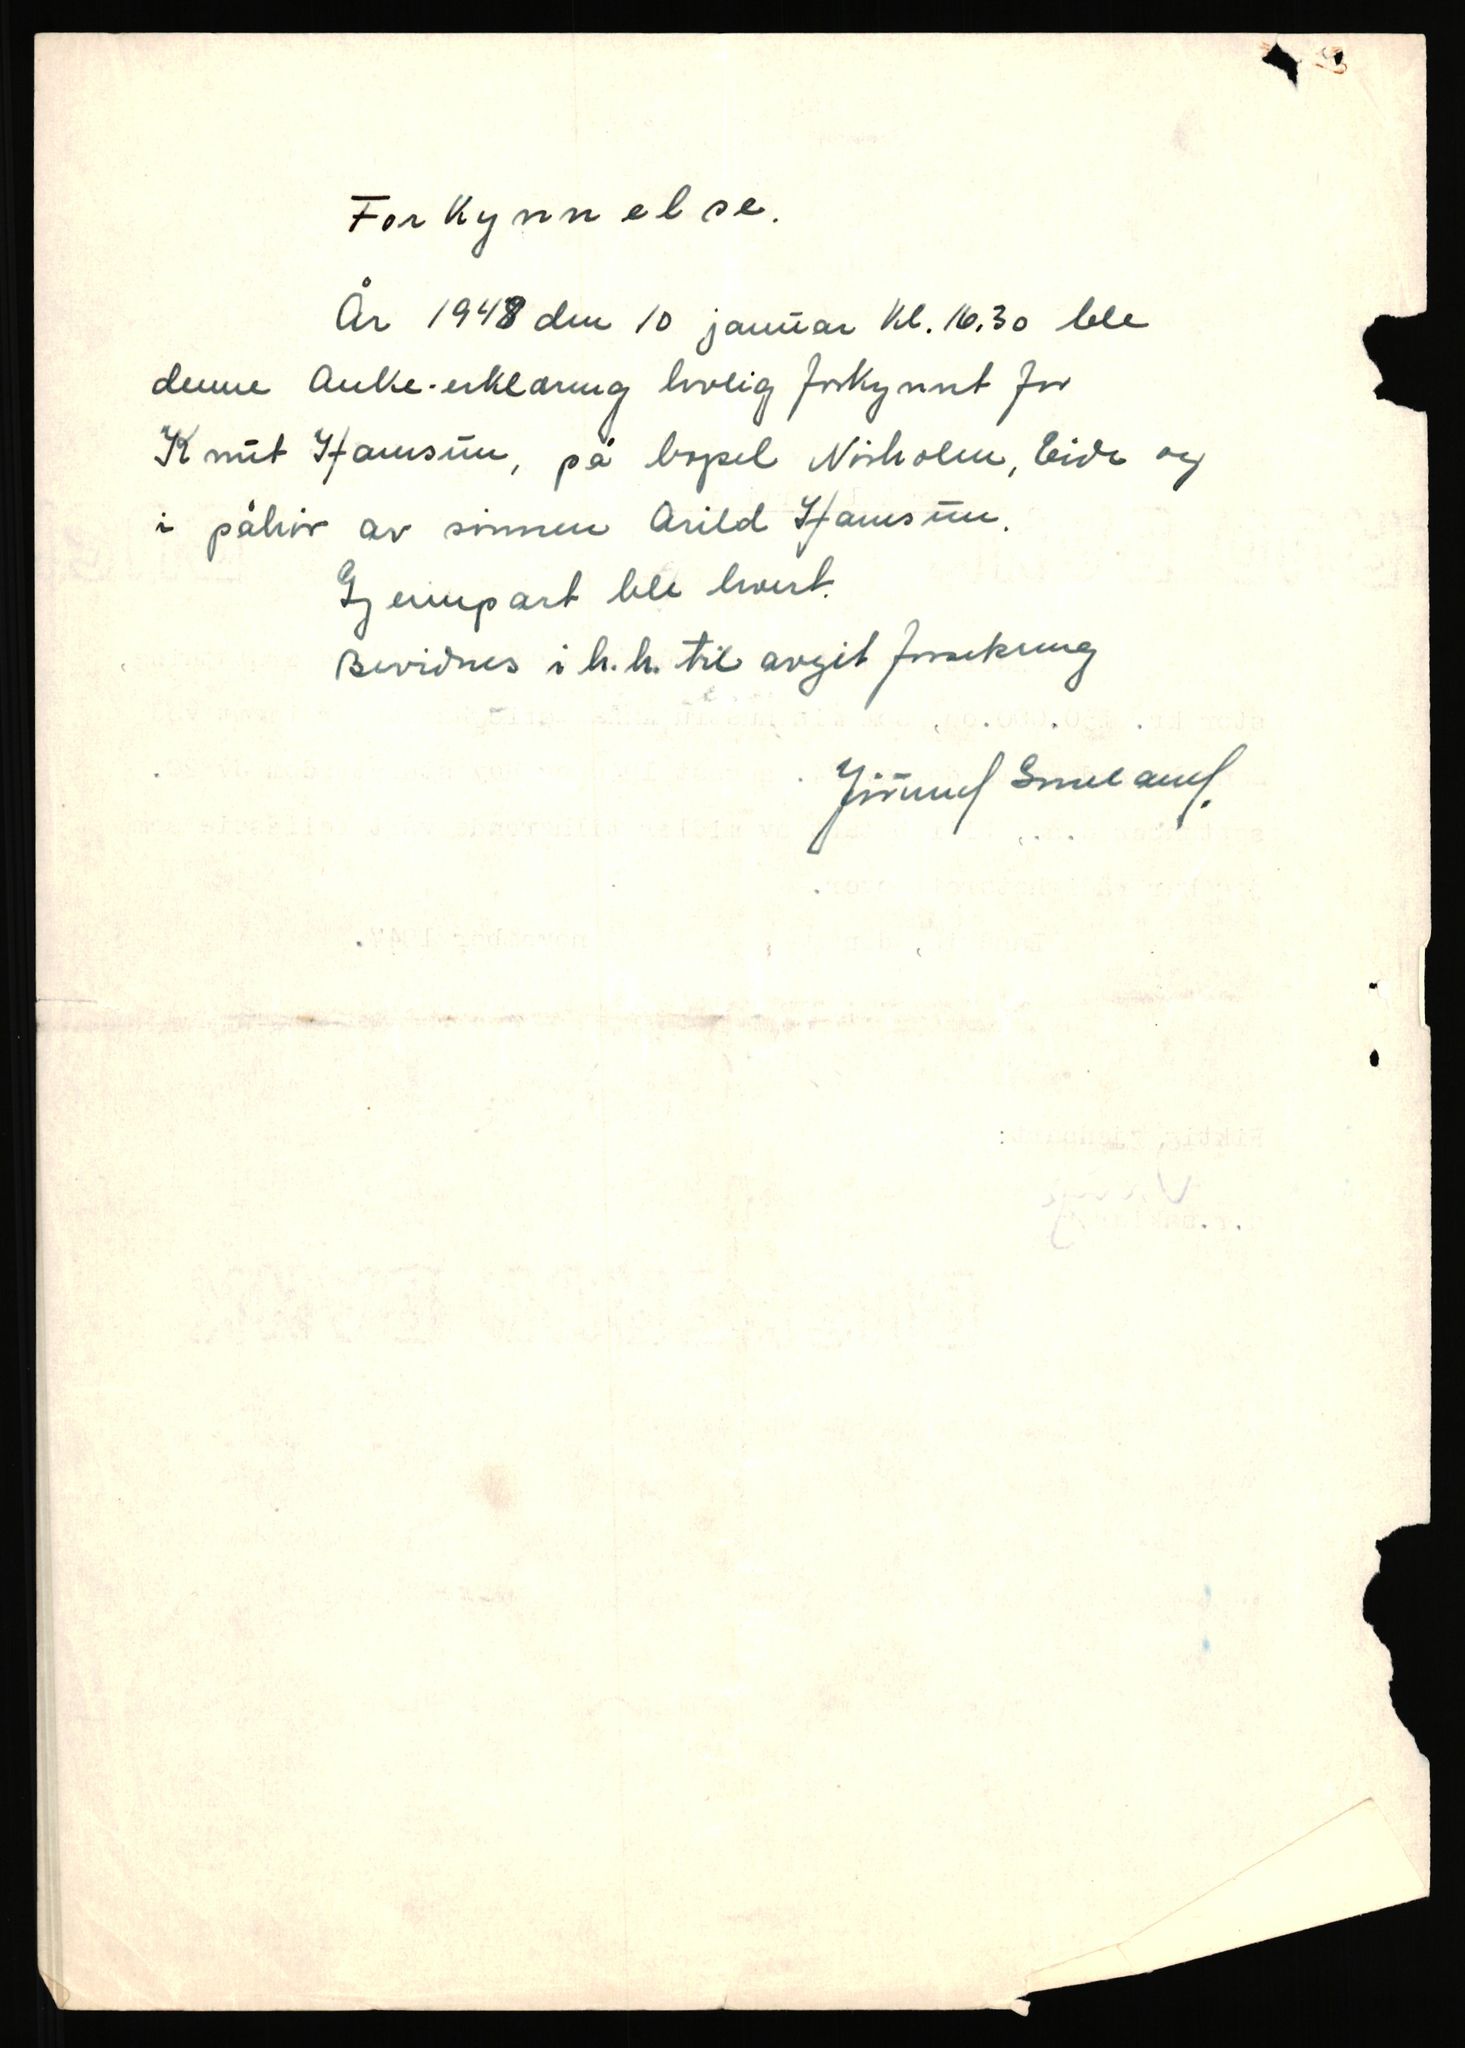 Forkynnelse.
År 1948 den 10 januar kl. 16.30 ble
denne Anke-erklæring lovlig forkynnt for
Knut Hamsun, på bopel Nörholm, Eide og
i påhör av sönnen Arild Hamsun.
Gjennpart ble levert.
Bevidnes i h.h. til avgit forsikring
november 1947.